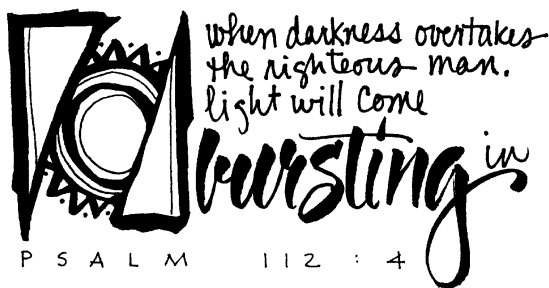 when darkness overtakes
the righteous man.
light will come
bursting in
PSALM 112:4